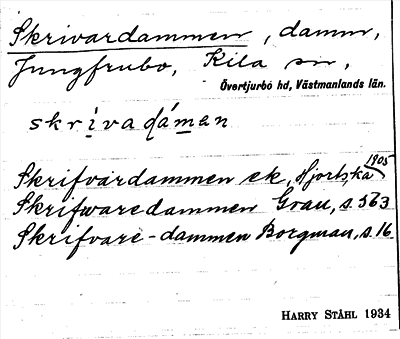 Skrivardammen, damm,
Jungfrubo, Kila sn,
Övertjurbo hd, Västmanlands län.
skrivadáman
1905
Skrifvardammen ek, Hjortska
Skrifwaredammen Grau, s. 563
Skrifvare-dammen Borgman, s. 16
HARRY STÅHL 1934